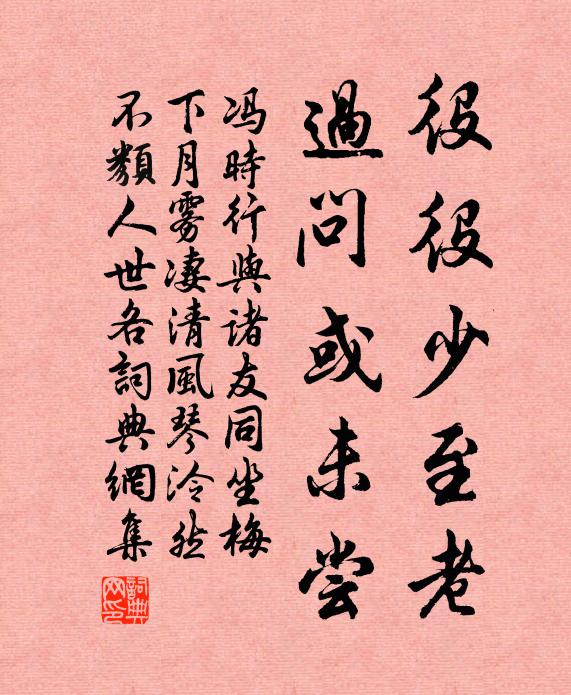 役役少至老
過問或未嘗
馮時行與諸友同坐梅
下月雾淒清風琴泠然
不類人世各詞典網集
詞典
網印